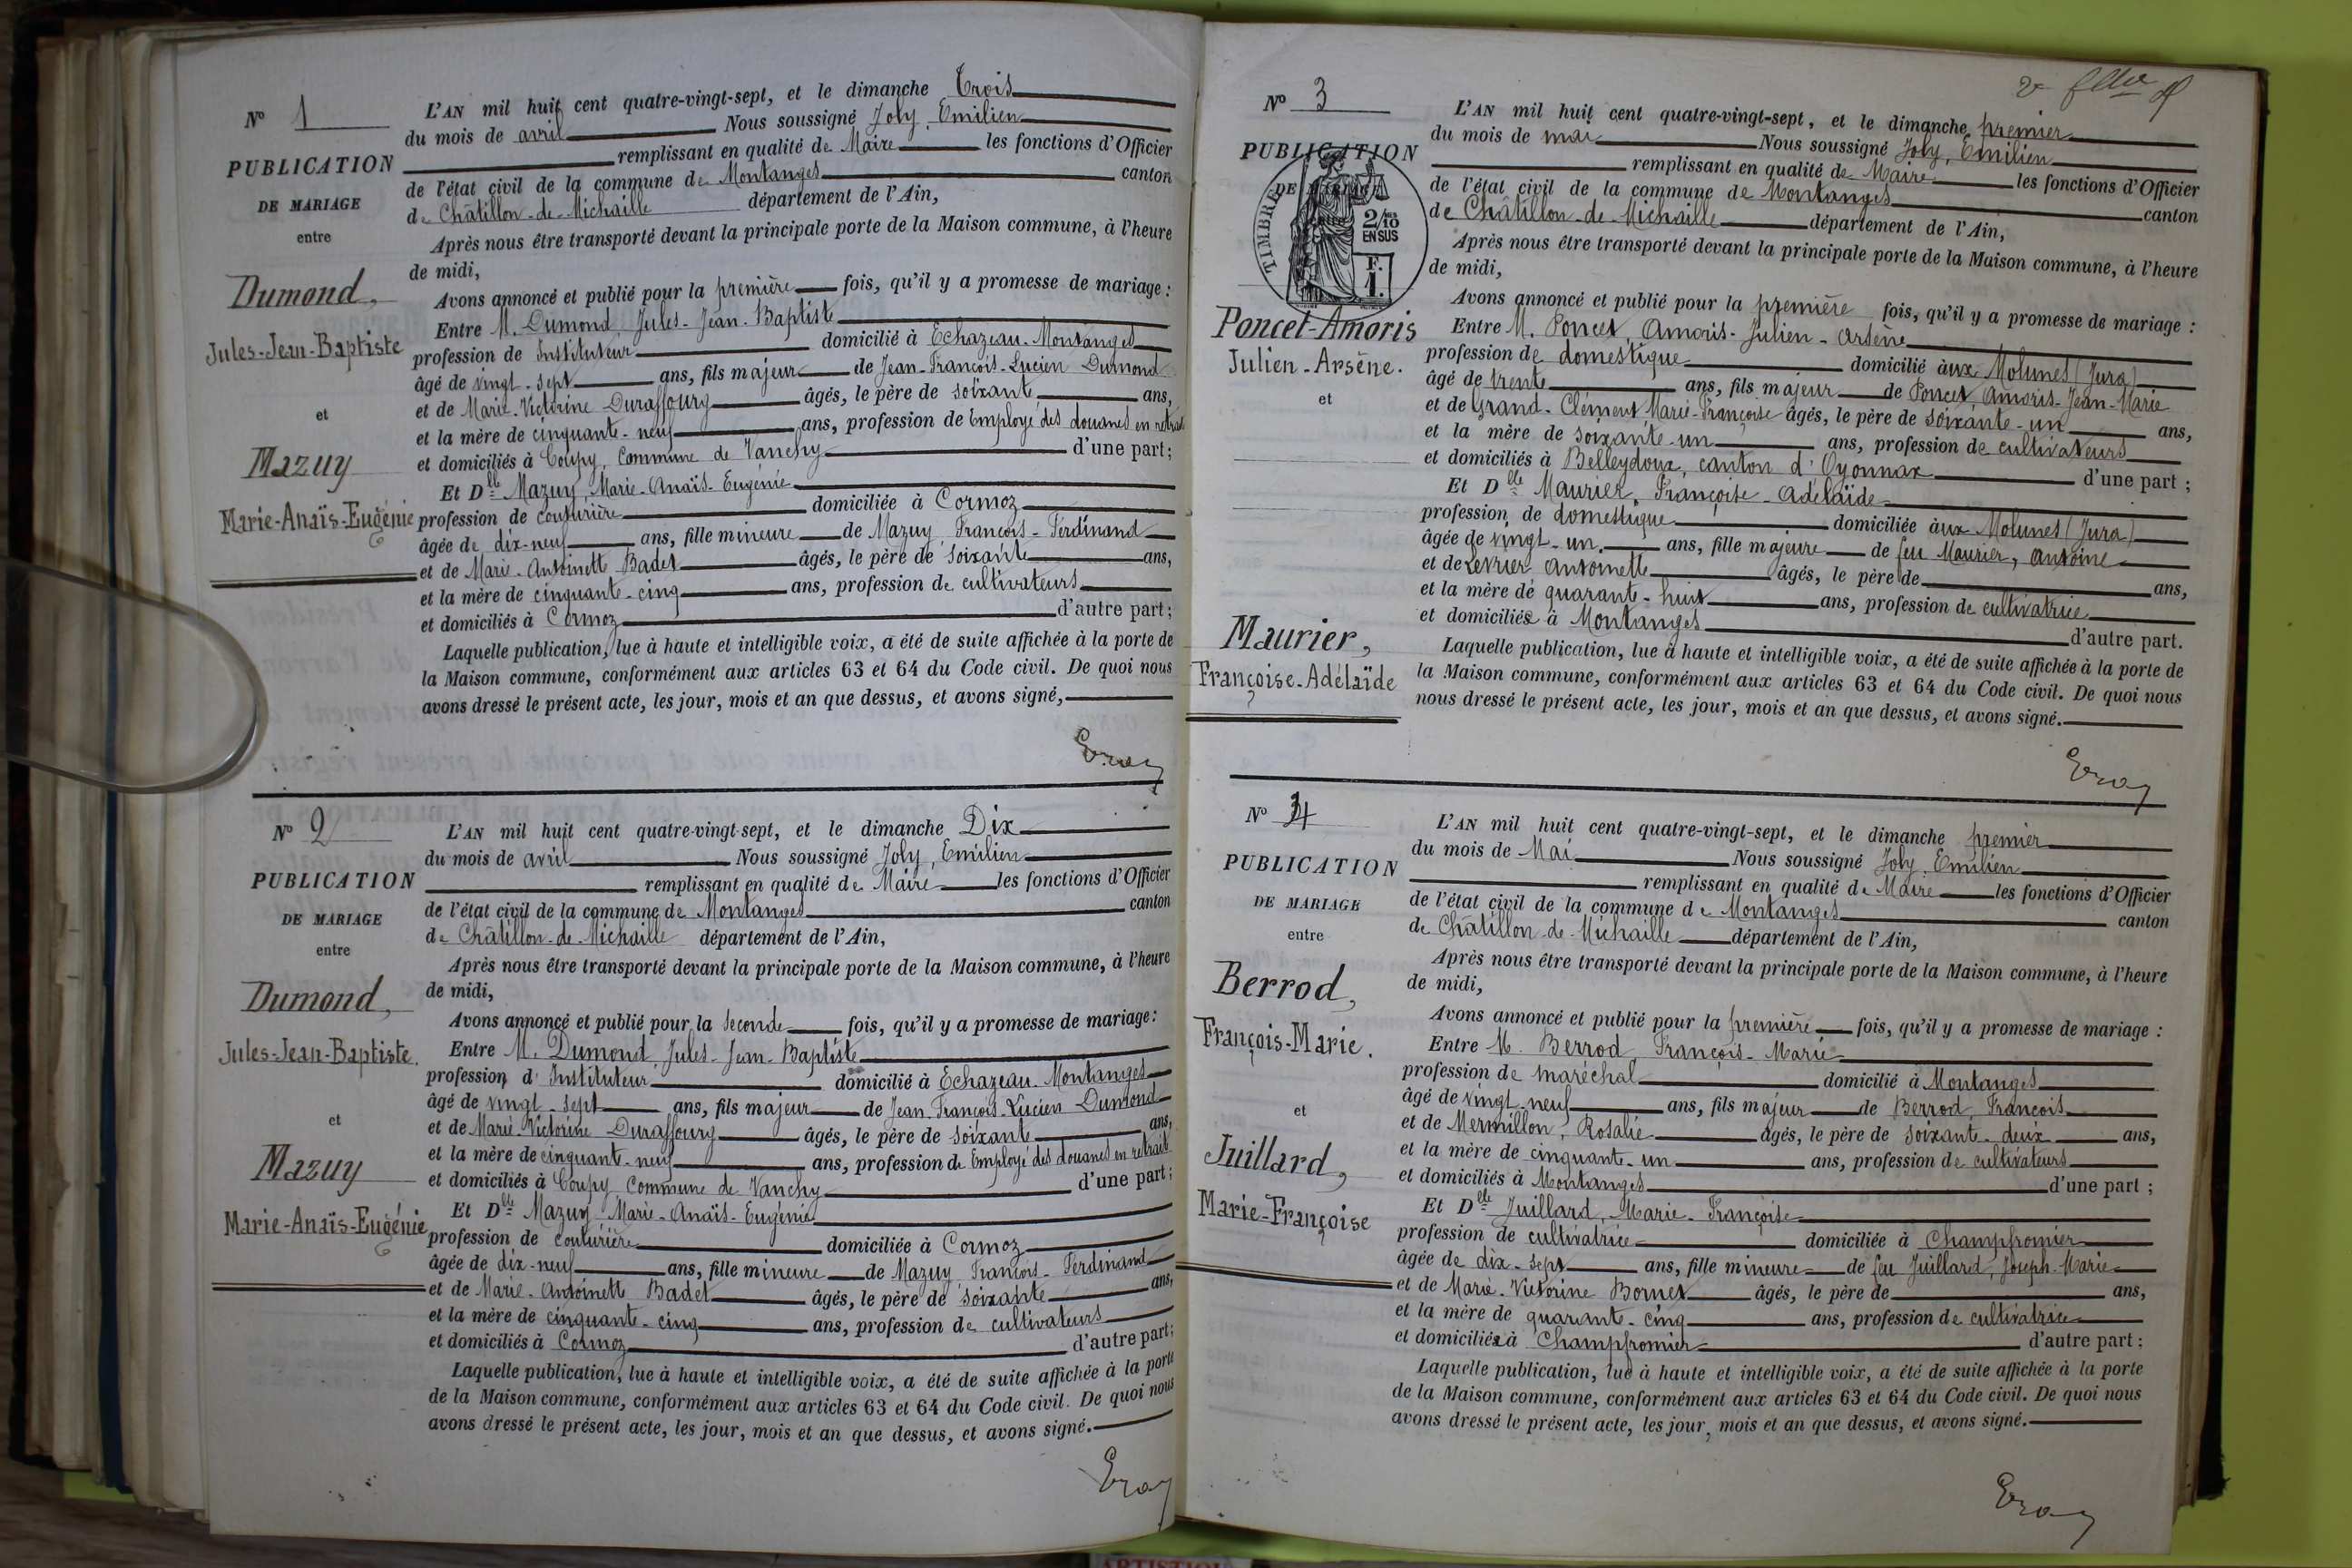 N° 1
PUBLICATION
DE MARIAGE
entre
Dumond,
Jules-Jean-Baptiste
et
Mazuy
Marie-Anaïs-Eugénie
L'AN mil huit cent quatre-vingt-sept, et le dimanche Trois
du mois de avril Nous soussigné Joly, Emilien
remplissant en qualité de Maire les fonctions d'Officier
de l'état civil de la commune de Montanges canton
de Châtillon-de-Michaille département de l'Ain,
Après nous être transporté devant la principale porte de la Maison commune, à l'heure
de midi,
Avons annoncé et publié pour la première fois, qu'il y a promesse de mariage :
Entre M. Dumond, Jules-Jean-Baptiste
profession de Instituteur domicilié à Echazeau-Montanges
âgé de vingt-sept ans, fils majeur de Jean-François-Lucien Dumond
et de Marie-Victorine Duraffourg âgés, le père de soixante ans,
et la mère de cinquante-neuf ans, profession de Employé des douanes en retraite
et domiciliés à Coupy, Commune de Vanchy d'une part;
Et Dlle Mazuy, Marie-Anaïs-Eugénie
profession de couturière domiciliée à Cormoz
âgée de dix-neuf ans, fille mineure de Mazuy François-Ferdinand
et de Marie-Antoinette Badet âgés, le père de soixante ans,
et la mère de cinquante-cinq ans, profession de cultivateurs
et domiciliés à Cormoz d'autre part;
Laquelle publication, lue à haute et intelligible voix, a été de suite affichée à la porte de
la Maison commune, conformément aux articles 63 et 64 du Code civil. De quoi nous
avons dressé le présent acte, les jour, mois et an que dessus, et avons signé,
N° 2
PUBLICATION
DE MARIAGE
entre
Dumond,
Jules-Jean-Baptiste.
et
Mazuy
Marie-Anaïs-Eugénie
L'AN mil huit cent quatre-vingt-sept, et le dimanche Dix
du mois de avril Nous soussigné Joly, Emilien
remplissant en qualité de Maire les fonctions d'Officier
de l'état civil de la commune de Montanges canton
de Châtillon-de-Michaille département de l'Ain,
Après nous être transporté devant la principale porte de la Maison commune, à l'heure
de midi,
Avons annoncé et publié pour la seconde fois, qu'il y a promesse de mariage :
Entre M. Dumond Jules-Jean-Baptiste
profession d'Instituteur domicilié à Echazeau-Montanges
âgé de vingt-sept ans, fils majeur de Jean-François-Lucien Dumond
et de Marie-Victorine Duraffourg âgés, le père de soixante ans,
et la mère de cinquante-neuf ans, profession de Employé des douanes en retraite
et domiciliés à Coupy Commune de Vanchy d'une part;
Et Dlle Mazuy Marie-Anaïs-Eugénie
profession de couturière domiciliée à Cormoz
âgée de dix-neuf ans, fille mineure de Mazuy François-Ferdinand
et de Marie-Antoinette Badet âgés, le père de soixante ans,
et la mère de cinquante-cinq ans, profession de cultivateurs
et domiciliés à Cormoz d'autre part;
Laquelle publication, lue à haute et intelligible voix, a été de suite affichée à la porte
de la Maison commune, conformément aux articles 63 et 64 du Code civil. De quoi nous
avons dressé le présent acte, les jour, mois et an que dessus, et avons signé.
N° 3
PUBLICATION
DE MARIAGE
TIMBRE
2/10
EN SUS
F.
1.
Poncet-Amoris
Julien-Arsène.
et
Maurier,
Françoise-Adélaïde
L'AN mil huit cent quatre-vingt-sept, et le dimanche premier
du mois de mai Nous soussigné Joly, Emilien
remplissant en qualité de Maire les fonctions d'Officier
de l'état civil de la commune de Montanges canton
de Châtillon-de-Michaille département de l'Ain,
Après nous être transporté devant la principale porte de la Maison commune, à l'heure
de midi,
Avons annoncé et publié pour la première fois, qu'il y a promesse de mariage :
Entre M. Poncet Amoris-Julien-Arsène
profession de domestique domicilié aux Molunes (Jura)
âgé de trente ans, fils majeur de Poncet Amoris-Jean-Marie
et de Grand-Clément Marie-Françoise âgés, le père de soixante-un ans,
et la mère de soixante-un ans, profession de cultivateurs
et domiciliés à Belleydoux, canton d'Oyonnax d'une part ;
Et Dlle Maurier, Françoise-Adélaïde
profession de domestique domiciliée aux Molunes (Jura)
âgée de vingt-un ans, fille majeure de feu Maurier, Antoine
et de Levrier Antoinette âgés, le père de ans,
et la mère de quarante-huit ans, profession de cultivatrice
et domiciliés à Montanges d'autre part.
Laquelle publication, lue à haute et intelligible voix, a été de suite affichée à la porte de
la Maison commune, conformément aux articles 63 et 64 du Code civil. De quoi nous
nous dressé le présent acte, les jour, mois et an que dessus, et avons signé.
N° 4
PUBLICATION
DE MARIAGE
entre
Berrod,
François-Marie.
et
Juillard,
Marie-Françoise
L'AN mil huit cent quatre-vingt-sept, et le dimanche premier
du mois de Mai Nous soussigné Joly, Emilien
remplissant en qualité de Maire les fonctions d'Officier
de l'état civil de la commune de Montanges canton
de Châtillon-de-Michaille département de l'Ain,
Après nous être transporté devant la principale porte de la Maison commune, à l'heure
de midi,
Avons annoncé et publié pour la première fois, qu'il y a promesse de mariage :
Entre M. Berrod, François-Marie
profession de maréchal domicilié à Montanges
âgé de vingt-neuf ans, fils majeur de Berrod, François
et de Mermillon, Rosalie âgés, le père de soixante-deux ans,
et la mère de cinquante-un ans, profession de cultivateurs
et domiciliés à Montanges d'une part ;
Et Dlle Juillard, Marie-Françoise
profession de cultivatrice domiciliée à Champfromier
âgée de dix-sept ans, fille mineure de feu Juillard, Joseph-Marie
et de Marie-Victorine Bornet âgés, le père de ans,
et la mère de quarante-cinq ans, profession de cultivatrice
et domiciliés à Champfromier d'autre part :
Laquelle publication, lue à haute et intelligible voix, a été de suite affichée à la porte
de la Maison commune, conformément aux articles 63 et 64 du Code civil. De quoi nous
avons dressé le présent acte, les jour, mois et an que dessus, et avons signé.